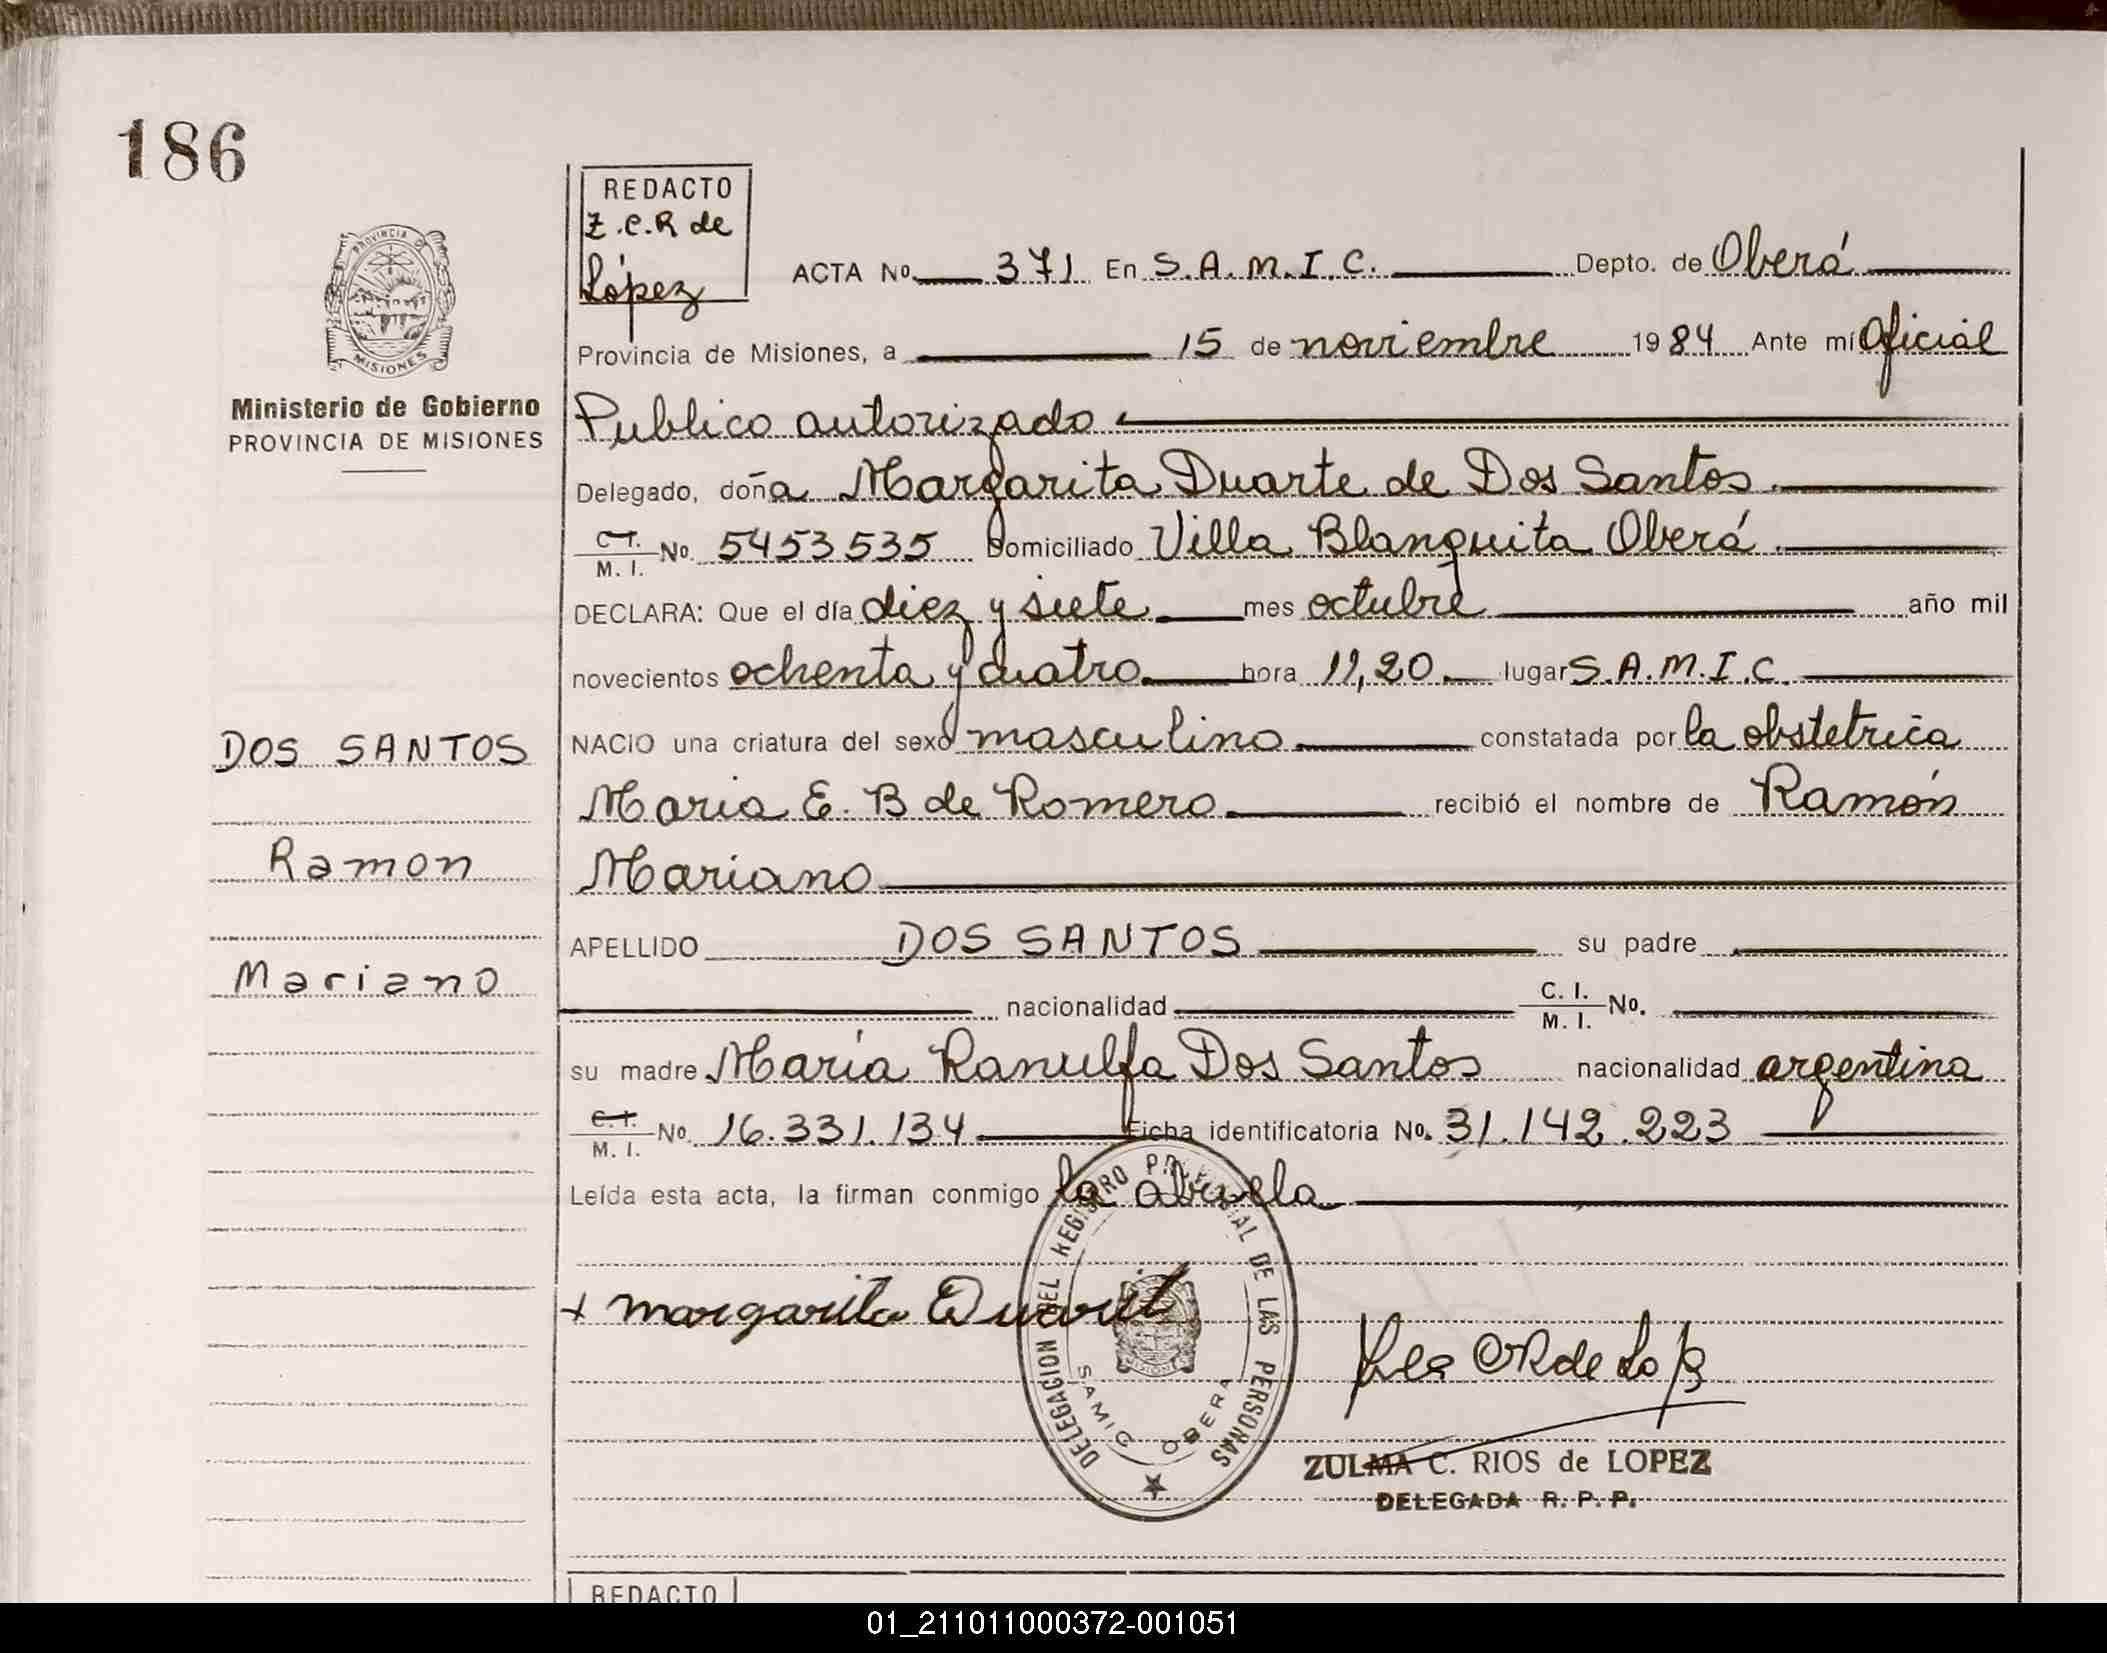 186
REDACTO
Z.C.R de
López
PROVINCIA D
MISIONES
ACTA No. 371 En S.A.M.I.C. Depto. de Oberá
Provincia de Misiones, a 15 de noviembre 1984 Ante mí Oficial
Ministerio de Gobierno
PROVINCIA DE MISIONES
Publico autorizado
Delegado, doña Margarita Duarte de Dos Santos.
C.I. M. I. No. 5453535 Domiciliado Villa Blanquita Oberá.
DECLARA: Que el día diez y siete mes octubre año mil
novecientos ochenta y cuatro hora 11,20. lugar S.A.M.I.C.
DOS SANTOS
NACIO una criatura del sexo masculino constatada por la obstetrica
Maria E. B de Romero recibió el nombre de Ramón
Ramon
Mariano
APELLIDO DOS SANTOS su padre
Mariano
nacionalidad C. I. M. I. No.
su madre María Ranulfa Dos Santos nacionalidad argentina
C.I. M. I. No. 16.331.134 Ficha identificatoria No. 31.142.223
Leída esta acta, la firman conmigo la abuela
+ margarita Duarte
DELEGACION DEL REGISTRO PROVINCIAL DE LAS PERSONAS
MISIONES
SAMIC OBERA
ZULMA C. RIOS de LOPEZ
DELEGADA R. P. P.
REDACTO
01_211011000372-001051